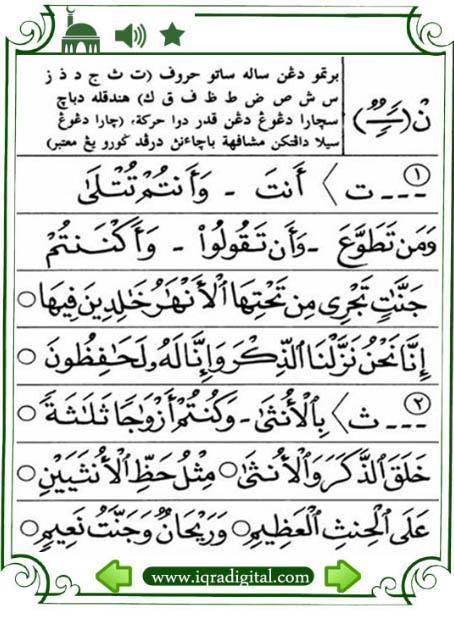 برتمو دڠن ساله ساتو حروف (ت ث ج د ذ ز
س ش ص ض ط ظ ف ق ك) هندقله دباچ
سچارا دڠوڠ دڠن قدر دوا حركة، (چارا دڠوڠ
سيلا دافتكن مشافهة باچائنڽ درڤد ݢورو يڠ معتبر)
نْ (ـًـٍـٌ)
١ ـ ـ ـ ت〉 أَنتَ - وَأَنتُمْ تُتْلَىٰ
وَمَن تَطَوَّعَ - وَأَن تَقُولُوا۟ - وَأَكْنَنتُمْ
جَنَّاتٍ تَجْرِى مِن تَحْتِهَا ٱلْأَنْهَٰرُ خَٰلِدِينَ فِيهَا ○
إِنَّا نَحْنُ نَزَّلْنَا ٱلذِّكْرَ وَإِنَّا لَهُۥ لَحَٰفِظُونَ ○
٢ ـ ـ ـ ث〉 بِٱلْأُنثَىٰ - وَكُنتُمْ أَزْوَٰجًا ثَلَٰثَةً ○
خَلَقَ ٱلذَّكَرَ وَٱلْأُنثَىٰ ○ مِثْلُ حَظِّ ٱلْأُنثَيَيْنِ ○
عَلَى ٱلْحِنثِ ٱلْعَظِيمِ ○ وَرَيْحَانٌ وَجَنَّتُ نَعِيمٍ ○
www.iqradigital.com